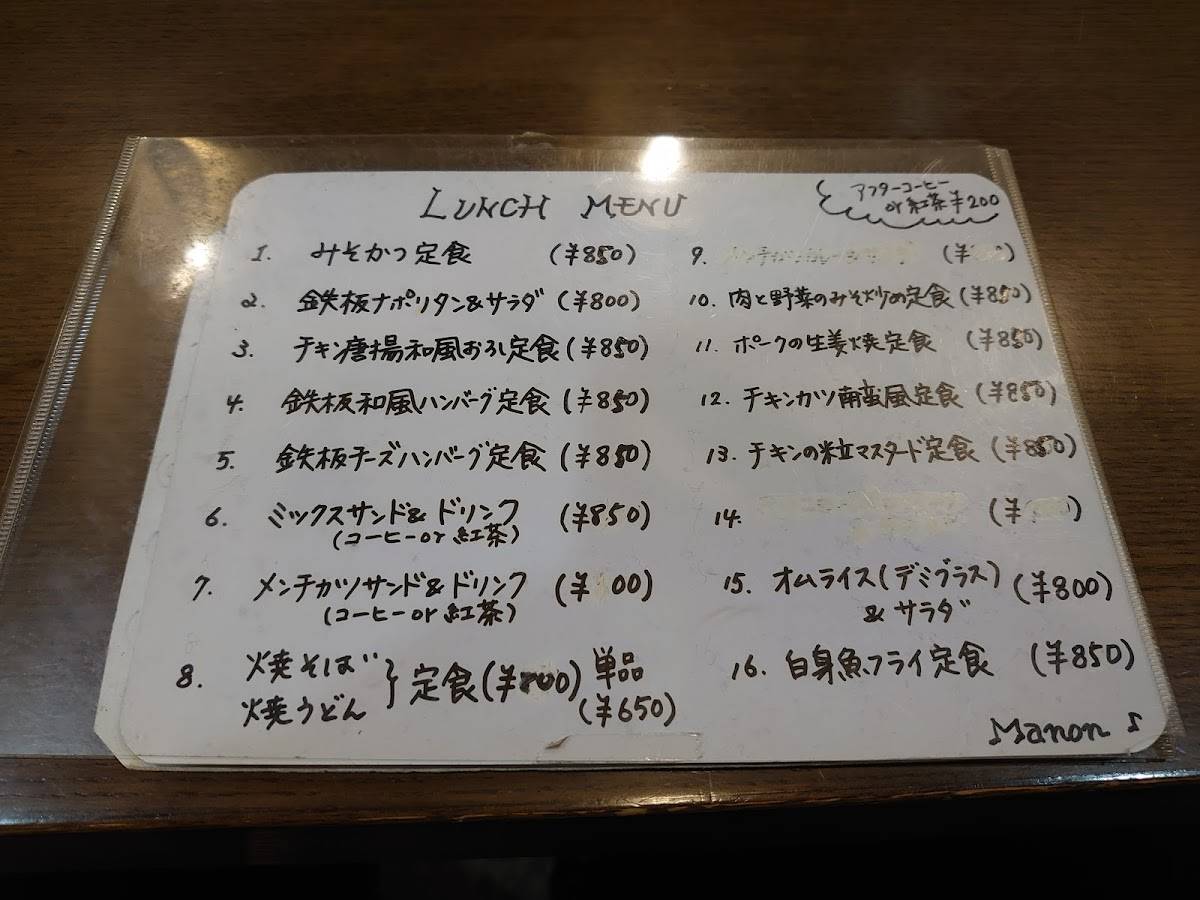 LUNCH MENU
アフターコーヒー
or 紅茶 ¥200
1. みそかつ定食 (¥850)
2. 鉄板ナポリタン&サラダ (¥800)
3. チキン唐揚和風おろし定食 (¥850)
4. 鉄板和風ハンバーグ定食 (¥850)
5. 鉄板チーズハンバーグ定食 (¥850)
6. ミックスサンド& ドリンク (¥850)
(コーヒー or 紅茶)
7. メンチカツサンド& ドリンク (¥ 00)
(コーヒー or 紅茶)
8. 焼そば
焼うどん } 定食 単品
(¥650)
9.
10. 肉と野菜のみそ炒め定食 (¥850)
11. ポークの生姜焼定食 (¥850)
12. チキンカツ南蛮風定食 (¥850)
13. チキンの粒マスタード定食 (¥850)
14. (¥ )
15. オムライス(デミグラス) (¥800)
& サラダ
16. 白身魚フライ定食 (¥850)
Manon ♪